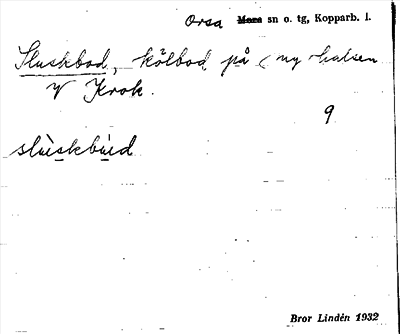 Orsa Mora sn o. tg, Kopparb. l.
Sluskbod, kölbod på ny-halsen
V Krok.
9
slùskbùd
Bror Lindén 1932